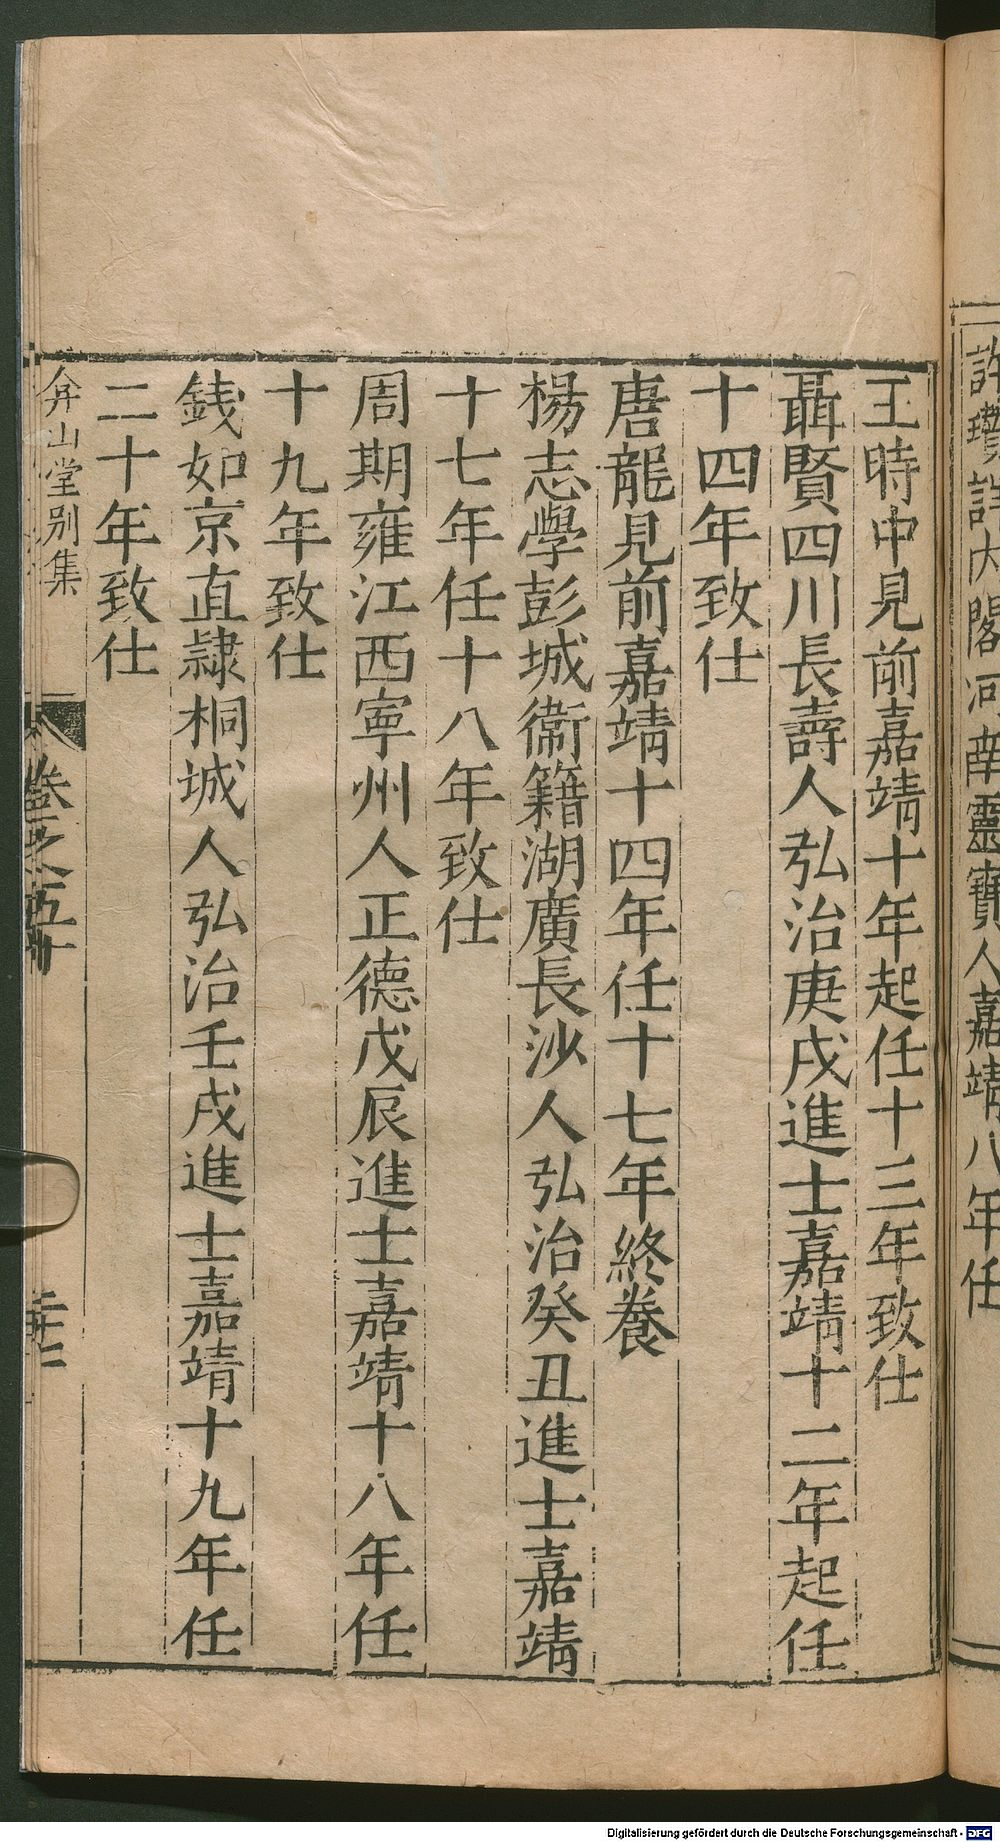 許瓚詳內閣河南靈寶人嘉靖八年任
王時中見前嘉靖十年起任十三年致仕
聶賢四川長壽人弘治庚戌進士嘉靖十二年起任
十四年致仕
唐龍見前嘉靖十四年任十七年終養
楊志學彭城衞籍湖廣長沙人弘治癸丑進士嘉靖
十七年任十八年致仕
周期雍江西寧州人正德戊辰進士嘉靖十八年任
十九年致仕
錢如京直隸桐城人弘治壬戌進士嘉靖十九年任
二十年致仕
弇山堂别集
卷之五十
Digitalisierung gefördert durch die Deutsche Forschungsgemeinschaft - DFG